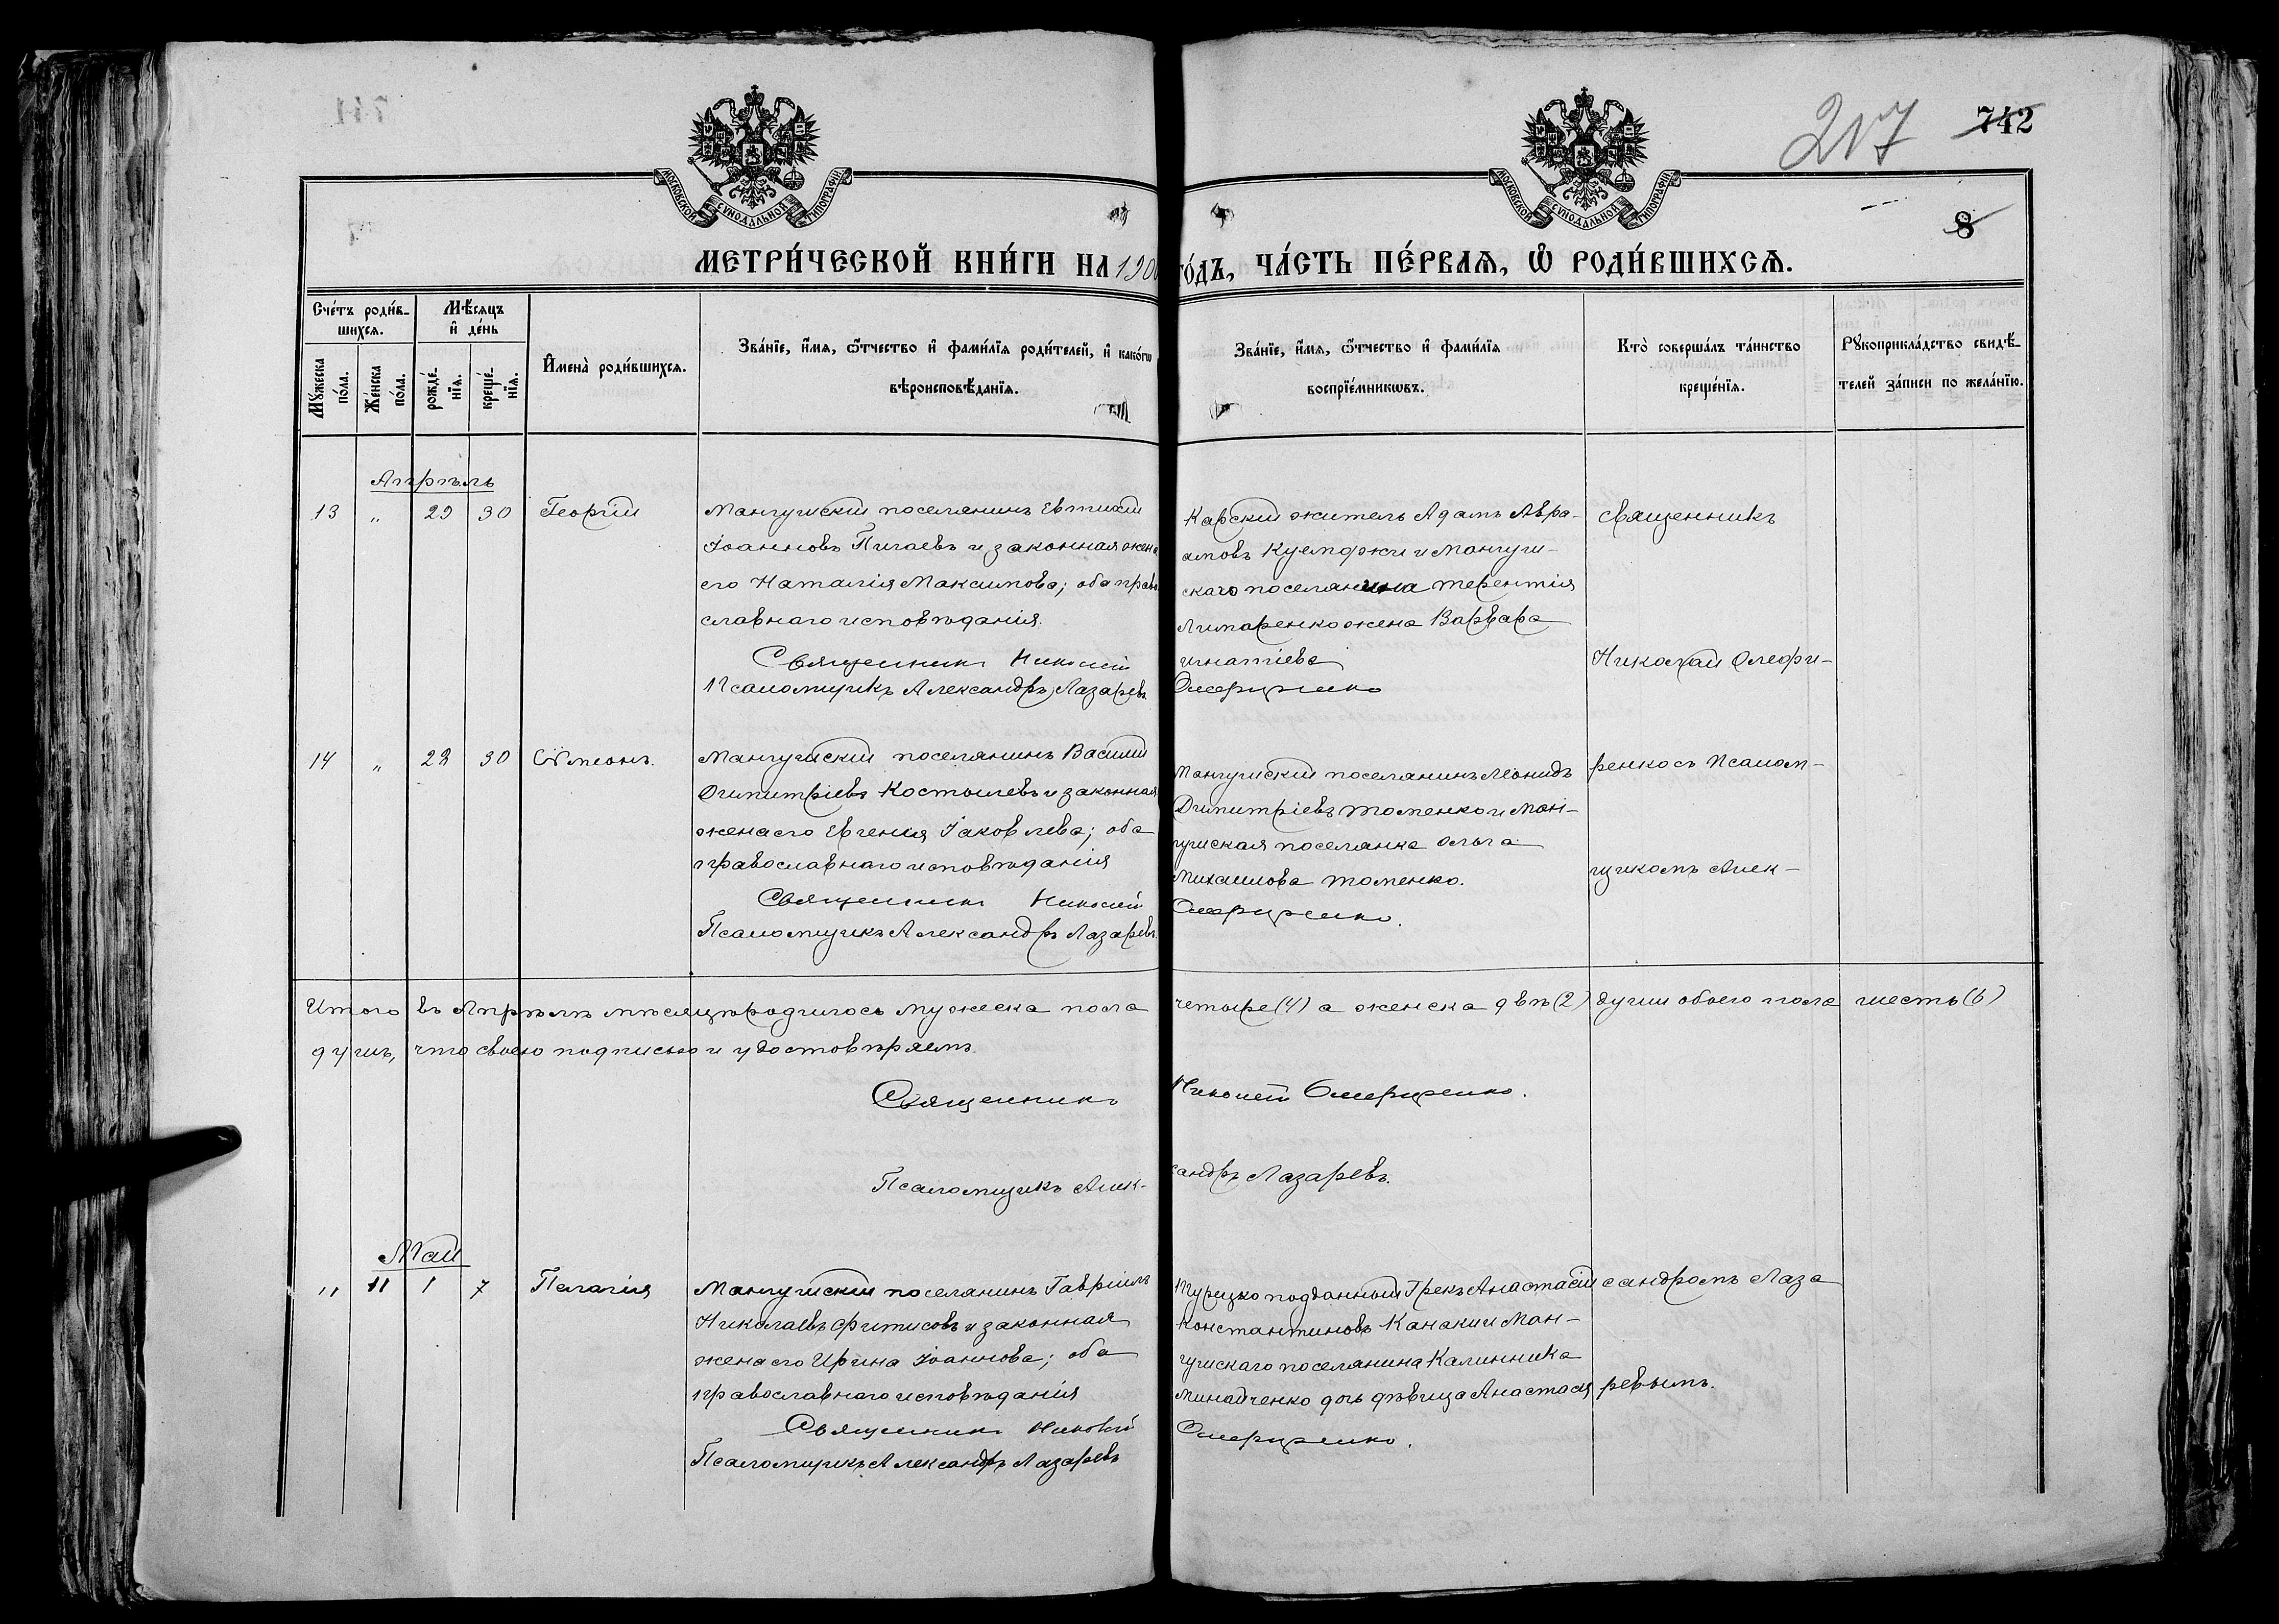 217
742
МОСКОВСКОЙ СѴНОДАЛЬНОЙ ТИПОГРАФІИ
МОСКОВСКОЙ СѴНОДАЛЬНОЙ ТИПОГРАФІИ
8
МЕТРИ́ЧЕСКОЙ КНИ́ГИ НА 190
ГО́ДЪ, ЧА́СТЬ ПЕ́РВАЯ, Ѡ҆ РОДИ́ВШИХСЯ.
Сче́тъ роди́в-
шихся.
Мѣ́сяцъ
и҆ де́нь
Мꙋ́жеска
по́ла.
Же́нска
по́ла.
рожде́-
нїя.
креще́-
нїя.
И҆мена̀ роди́вшихся.
Зва́нїе, и҆́мя, ѻ҆́тчество и҆ фами́лїя роди́телей, и҆ како́гѡ
вѣроисповѣ́данїя.
Зва́нїе, и҆́мя, ѻ҆́тчество и҆ фами́лїя
воспрїе́мникѡвъ.
Кто̀ соверша́лъ та́инство
креще́нїя.
Рꙋкоприкла́дство свидѣ́-
телей за́писи по жела́нїю.
Апрѣль
13 " 29 30 Георгій
Мангушскій поселянинъ Евтихій
Іоанновъ Пичаевъ и законная жена
его Наталія Максимова; оба право
славнаго исповѣданія.
Священникъ Николай
Псаломщикъ Александръ Лазаревъ
Карскій житель Адамъ Авра-
амовъ и Мангуш-
скаго поселянина Терентія
Лимаренко жена Варвара
Игнатіева
Олефиренко
Священникъ
Николай Олефи-
14 " 22 30 Сѵмеонъ.
Мангушскій поселянинъ Василій
Димитріевъ Костылевъ и законная
жена его Евгенія Іаковлева; оба
православнаго исповѣданія
Священникъ Николай
Псаломщикъ Александръ Лазаревъ.
Мангушскій поселянинъ Леонидъ
Димитріевъ Томенко и Ман-
гушская поселянка Ольга
Михаилова Томенко.
Олефиренко.
ренко съ Псалом-
щикомъ Алек-
Итого въ Апрѣлѣ мѣсяцѣ родилось мужеска пола четыре (4) а женска двѣ (2) души обоего пола шесть (6)
душъ, что своею подписью и удостовѣряемъ.
Священникъ Николай Олефиренко.
Псаломщикъ Алек-сандръ Лазаревъ.
Май
" 11 1 7 Пелагія
Мангушскій поселянинъ Гавріилъ
Николаевъ Фитисовъ и законная
жена его Ирина Іоаннова; оба
православнаго исповѣданія
Священникъ Николай
Псаломщикъ Александръ Лазаревъ
Турецко подданный Грекъ Анастасій
Константиновъ Канаки и Ман-
гушскаго поселянина Калинника
Минайченко дочь дѣвица Анастасія
Олефиренко.
сандромъ Лаза
ревымъ.